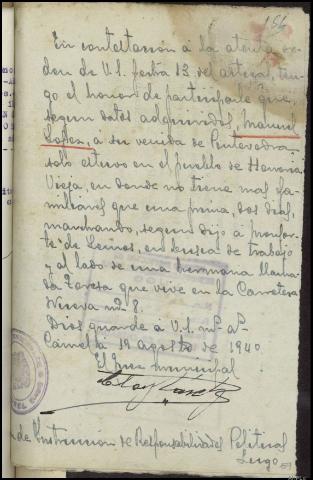 154
En contestación á la atenta or-
den de V.I. fecha 13 del actual, ten-
go el honor de participarle que,
segun datos adquiridos, Manuel
Lopez, a su venida de Pontevedra
solo estuvo en el pueblo de
en donde no tiene mas fa-
miliares que una prima, dos dias,
marchando, segun dijo á Monfor-
te de Lemos, en busca de trabajo
y al lado de una hermana llama-
da Teresa que vive en la Carretera
Nueva nº 8.
Dios guarde á V.I. mˢ aˢ
19 Agosto de 1940
El Juez municipal
de Instruccion de Responsabilidades Politicas
Lugo